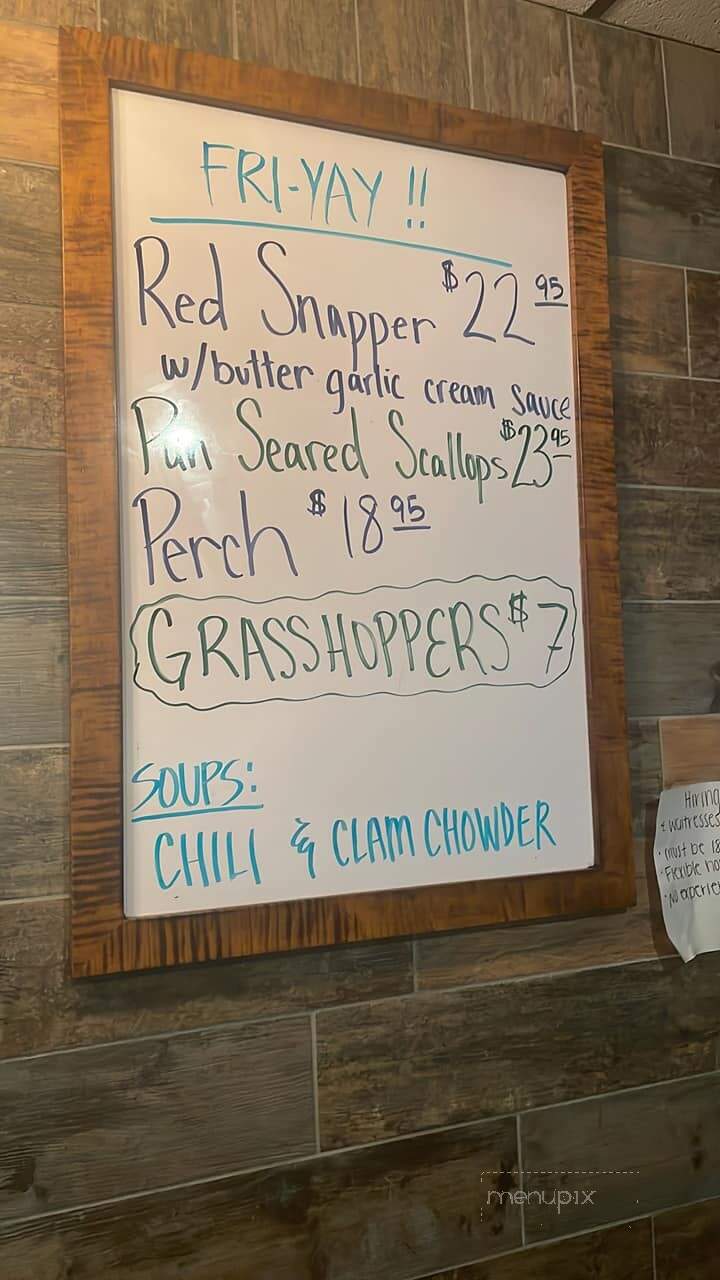 FRI-YAY !!
Red Snapper $22 95
w/butter garlic cream sauce
Pan Seared Scallops $23 95
Perch $18 95
GRASSHOPPERS $7
SOUPS:
CHILI & CLAM CHOWDER
Hiring
waitresses
· must be 18
· Flexible
· No
menupix